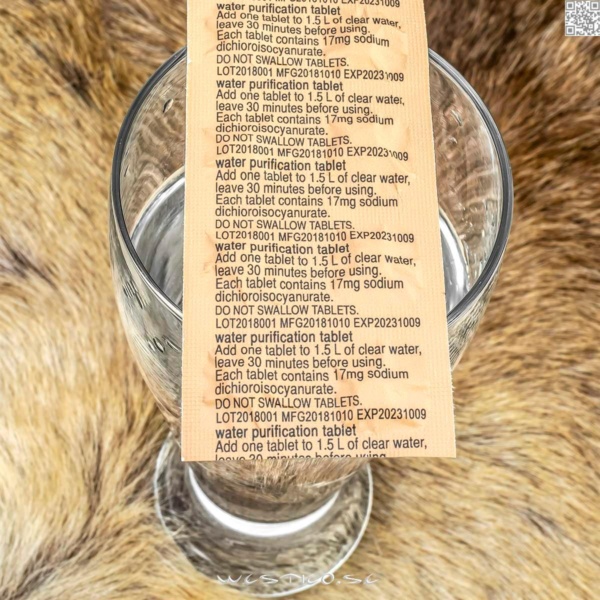 LOT2018001 MFG20181010 EXP20231009
water purification tablet
Add one tablet to 1.5 L of clear water,
leave 30 minutes before using.
Each tablet contains 17mg sodium
dichloroisocyanurate.
DO NOT SWALLOW TABLETS.
LOT2018001 MFG20181010 EXP20231009
water purification tablet
Add one tablet to 1.5 L of clear water,
leave 30 minutes before using.
Each tablet contains 17mg sodium
dichloroisocyanurate.
DO NOT SWALLOW TABLETS.
LOT2018001 MFG20181010 EXP20231009
water purification tablet
Add one tablet to 1.5 L of clear water,
leave 30 minutes before using.
Each tablet contains 17mg sodium
dichloroisocyanurate.
DO NOT SWALLOW TABLETS.
LOT2018001 MFG20181010 EXP20231009
water purification tablet
Add one tablet to 1.5 L of clear water,
leave 30 minutes before using.
Each tablet contains 17mg sodium
dichloroisocyanurate.
DO NOT SWALLOW TABLETS.
LOT2018001 MFG20181010 EXP20231009
water purification tablet
Add one tablet to 1.5 L of clear water,
leave 30 minutes before using.
Each tablet contains 17mg sodium
dichloroisocyanurate.
DO NOT SWALLOW TABLETS.
LOT2018001 MFG20181010 EXP20231009
water purification tablet
Add one tablet to 1.5 L of clear water,
leave 30 minutes before using.